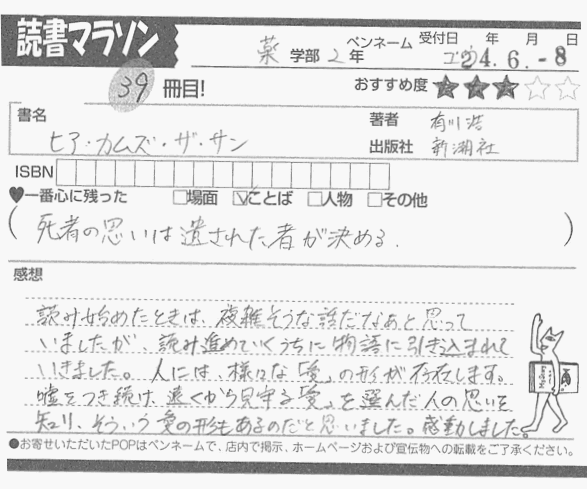 読書マラソン
薬 学部 2年 ペンネーム 受付日 年 月 日
24.6.-8
39 冊目! おすすめ度 ★★★☆☆
書名 著者 有川浩
ヒア・カムズ・ザ・サン 出版社 新潮社
ISBN
♥一番心に残った □場面 ☑ことば □人物 □その他
(死者の思いは遺された者が決める.)
感想
読み始めたときは、複雑そうな話だなあと思って
いましたが、読み進めていくうちに物語に引き込まれて
いきました。人には、様々な「愛」のカタチが存在します。
嘘をつき続け、遠くから見守る「愛」を選んだ人の思いを
知り、そういう愛の形もあるのだと思いました。感動しました。
●お寄せいただいたPOPはペンネームで、店内で掲示、ホームページおよび宣伝物への転載をご了承ください。